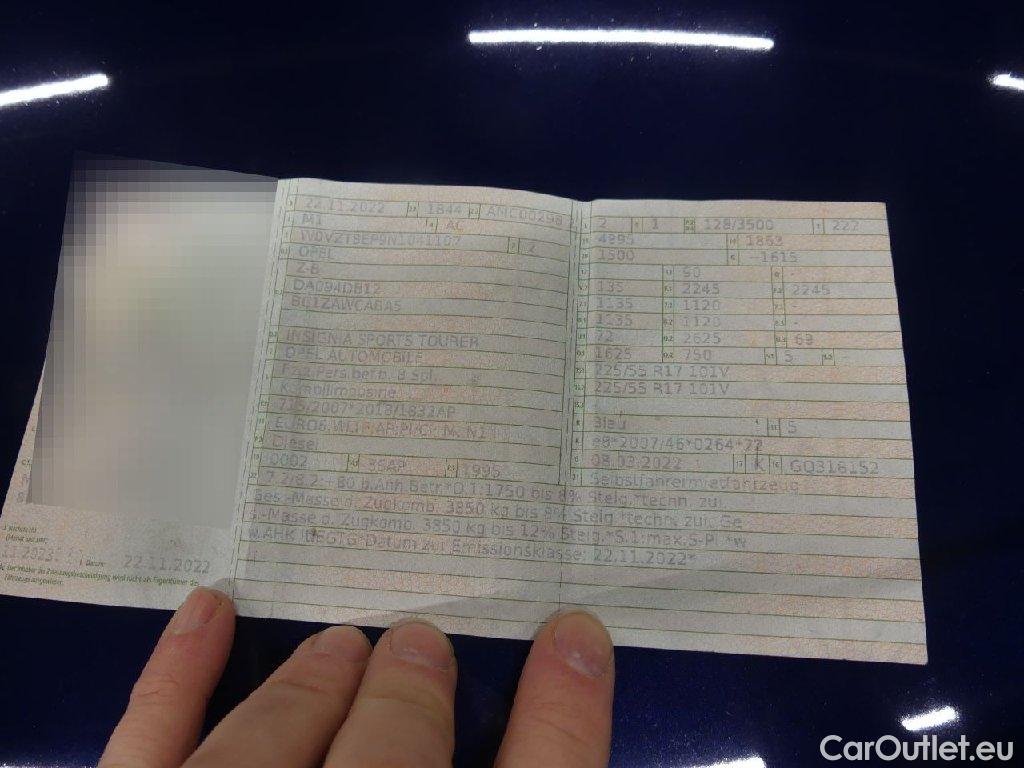 22.11.2022 1844 AMC00298
M1 AC
W0VZT8EP9N1041107 2
OPEL
Z-B
DA094DB12
BC1ZAWCABA5
INSIGNIA SPORTS TOURER
OPEL AUTOMOBILE
Fz.z.Pers.bef.b. 8 Spl.
Kombilimousine
715/2007*2018/1832AP
EURO6
Diesel
0002 36AP 1995
2 1 128/3500 222
4995 1863
1500 -1615
- 90 -
135 2245 2245
1135 1120 -
1135 1120 -
72 2625 69
1625 750 5 -
225/55 R17 101V
225/55 R17 101V
-
Blau 5
e8*2007/46*0264*22
08.03.2022 K GQ318152
Selbstfahrermietfahrzeug
7.2/8.2:+80 b.Anh.Betr*O.1:1750 bis 8% Steig.*techn. zul.
Ges.-Masse d. Zugkomb. 3850 kg bis 8% Steig.*techn. zul. Ge
s.-Masse d. Zugkomb. 3850 kg bis 12% Steig.*S.1:max.5-Pl.*w
Datum zur Emissionsklasse: 22.11.2022*
(Monat und Jahr)
Datum: 22.11.2022
Der Inhaber der Zulassungsbescheinigung wird nicht als Eigentümer des
Fahrzeugs ausgewiesen.
CarOutlet.eu